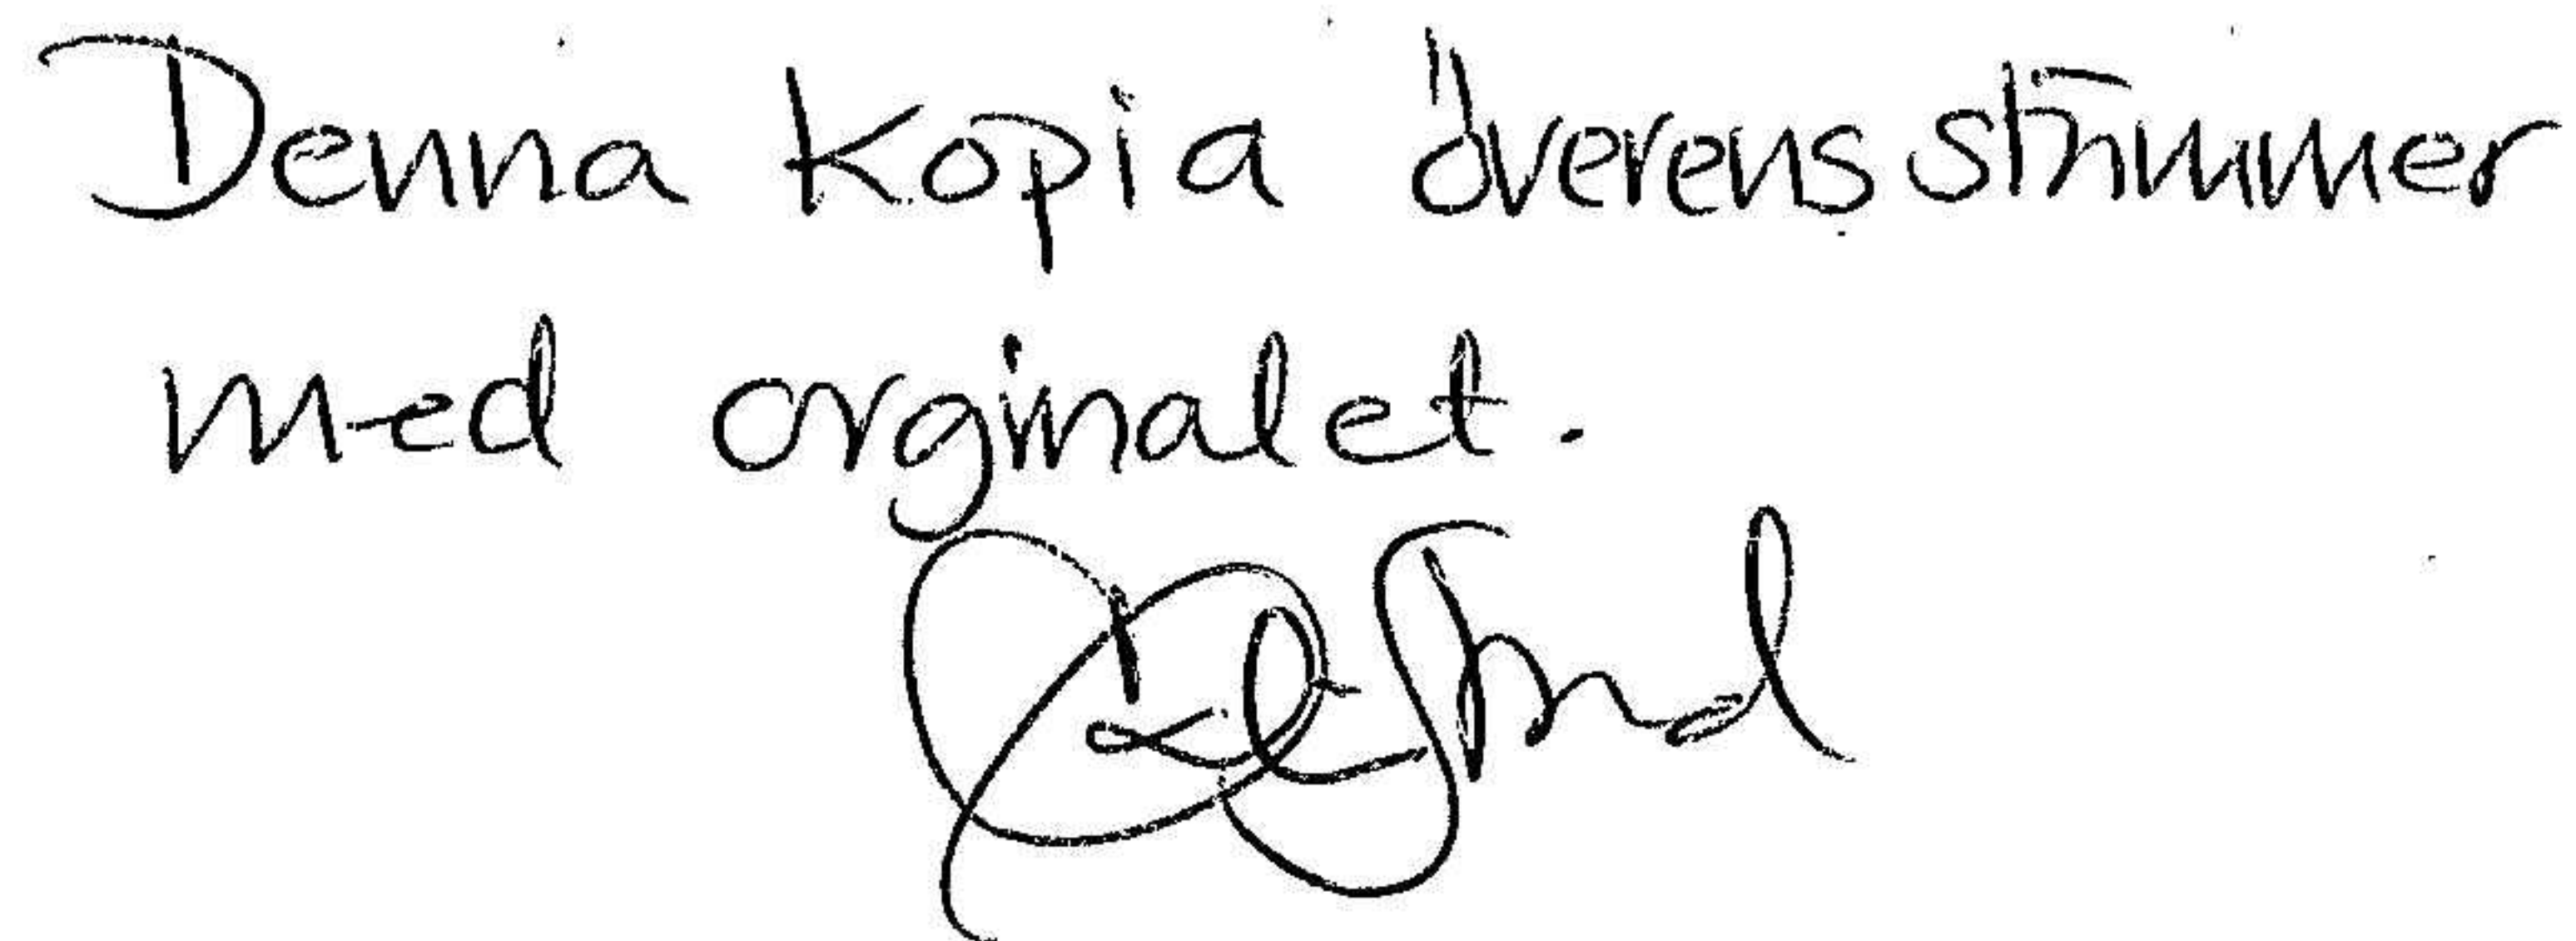 Denna Kopia överensstämmer
med orginalet.